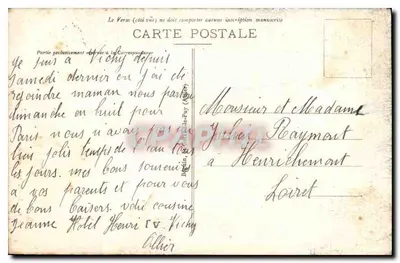 Le Verso (côté vue) ne doit comporter aucune inscription manuscrite
CARTE POSTALE
Partie exclusivement réservée à la Correspondance
Je suis à Vichy depuis
Samedi dernier on j'ai été
rejoindre maman nous partons
dimanche en huit pour
Paris nous n'avons
bien jolis temps de l'eau tous
les jours. mes bons souvenirs
à vos parents et pour vous
de bons baisers votre cousine
Jeanne Hotel Henri IV Vichy
Allier
Monsieur et Madame
Jules Raymont
à Henrichemont
Loiret